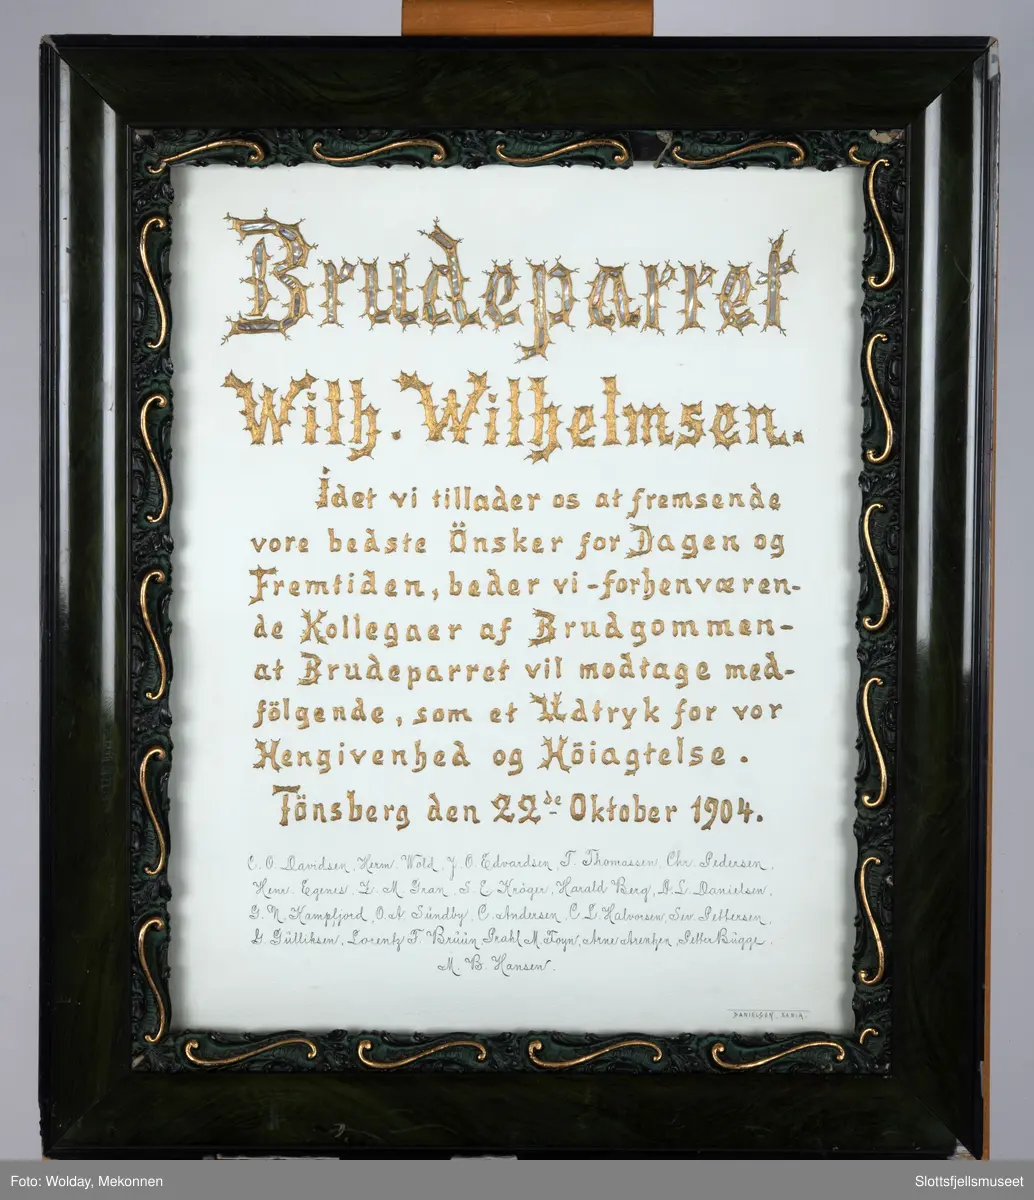 Brudeparret
Wilh. Wilhelmsen.
Idet vi tillader os at fremsende
vore bedste Önsker for Dagen og
Fremtiden, beder vi - forhenværen-
de Kollegaer af Brudgommen -
at Brudeparret vil modtage med-
fölgende, som et Udtryk for vor
Hengivenhed og Höiagtelse.
Tönsberg den 22de Oktober 1904.
C. O. Davidsen, Herm Wold, J. O. Edvardsen, T. Thomassen, Chr. Pedersen,
Henr. Egenes, L. M. Gran, S. E. Kröger, Harald Berg, A. L. Danielsen,
G. N. Kampfjord, O. A Sundby, C. Andersen, C. L. Halvorsen, Sev. Pettersen,
G. Gulliksen, Lorentz F. Bruun, Prahl M. Foyn, Arne Arentzen, Petter Bugge,
M. B. Hansen.
DANIELSEN
Foto: Wolday, Mekonnen
Slottsfjellsmuseet